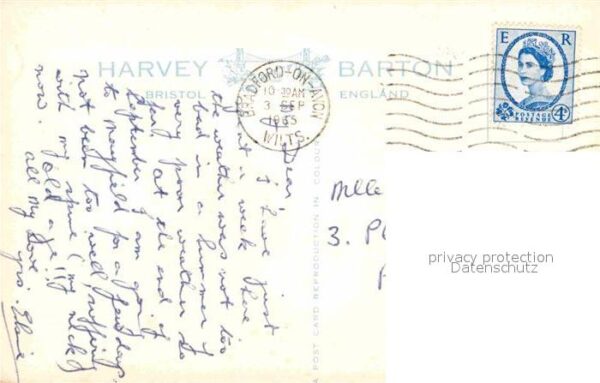 HARVEY BARTON
BRISTOL ENGLAND
BRADFORD-ON-AVON
10 30AM
3 SEP
1965
WILTS.
E R
POSTAGE REVENUE
4D
A POST CARD REPRODUCTION IN COLOUR
Dear
I have just
spent a week here
the weather was not too
bad in a summer of
very poor weather so
far. at the end of
September I am going
to Mayfield for a few days.
not been too well, suffering
with my spine (my neck)
old age!!
now. all my love
yrs. Elaine
Mlle
3. P
privacy protection
Datenschutz